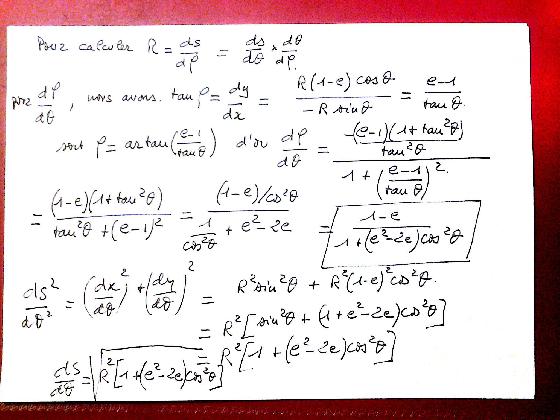 Pour calculer R = ds/dρ = ds/dθ × dθ/dρ
pour dρ/dθ, nous avons. tan ρ = dy/dx = R(1-e) cosθ / -R sinθ = e-1 / tanθ
soit ρ = artan(e-1/tanθ) d'où dρ/dθ = (-(e-1)(1+tan²θ) / tan²θ) / (1 + (e-1/tanθ)²)
= (1-e)(1+tan²θ) / (tan²θ + (e-1)²) = ((1-e)/cos²θ) / (1/cos²θ + e²-2e) = 1-e / (1+(e²-2e)cos²θ)
ds²/dθ² = (dx/dθ)² + (dy/dθ)² = R²sin²θ + R²(1-e)²cos²θ.
= R²[sin²θ + (1+e²-2e)cos²θ]
= R²[1 + (e²-2e)cos²θ]
ds/dθ = √(R²[1+(e²-2e)cos²θ])